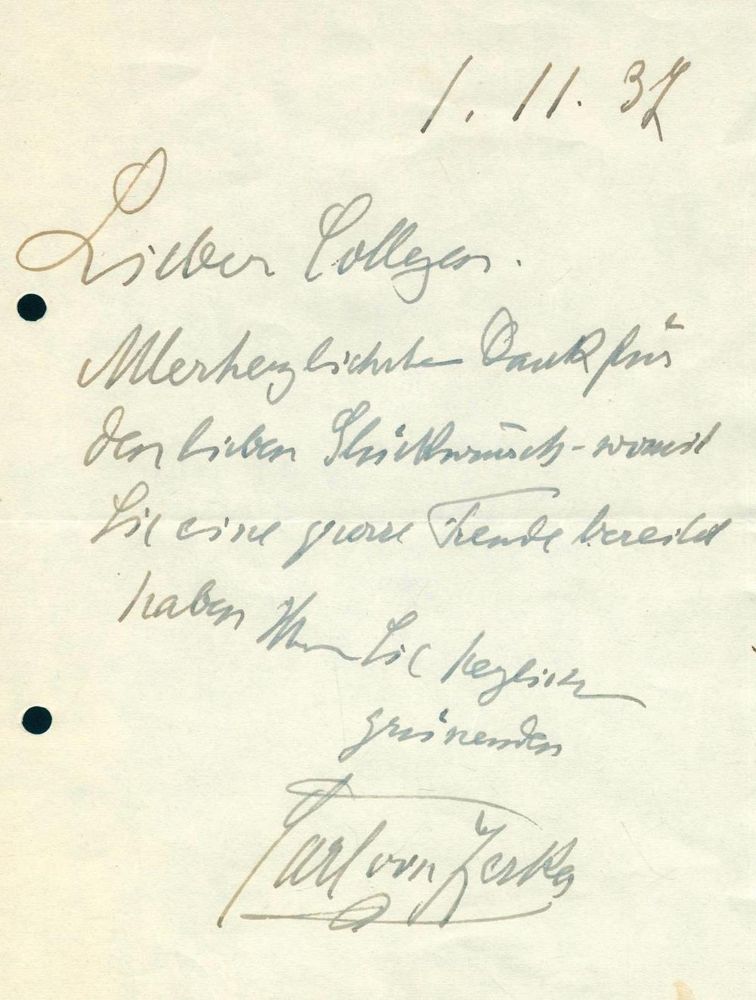 1. 11. 37
Lieber Collega.
Allerherzlichsten Dank für
den lieben Glückwunsch - womit
Sie eine grosse Freude bereitet
haben Ihren Sie herzlich
grüssenden
Carl von Zeska